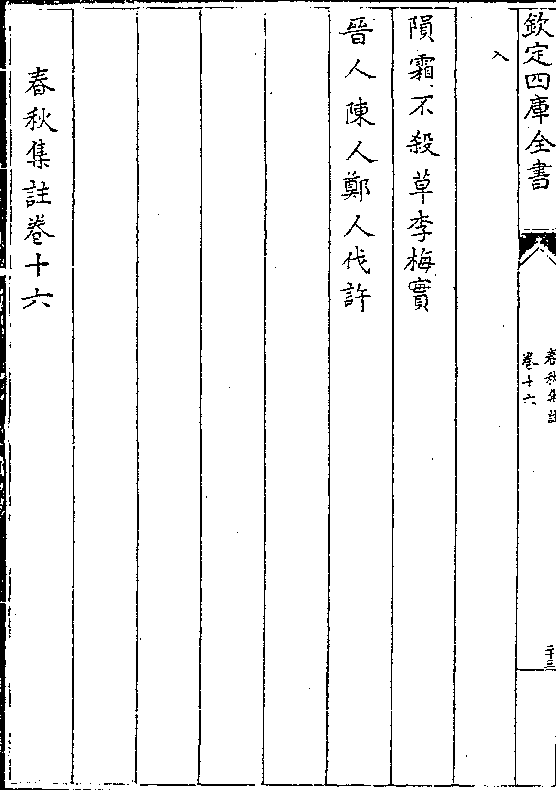 欽定四庫全書
春秋集註
卷十六
二十三
入
隕霜不殺草李梅實
晉人陳人鄭人伐許
春秋集註卷十六